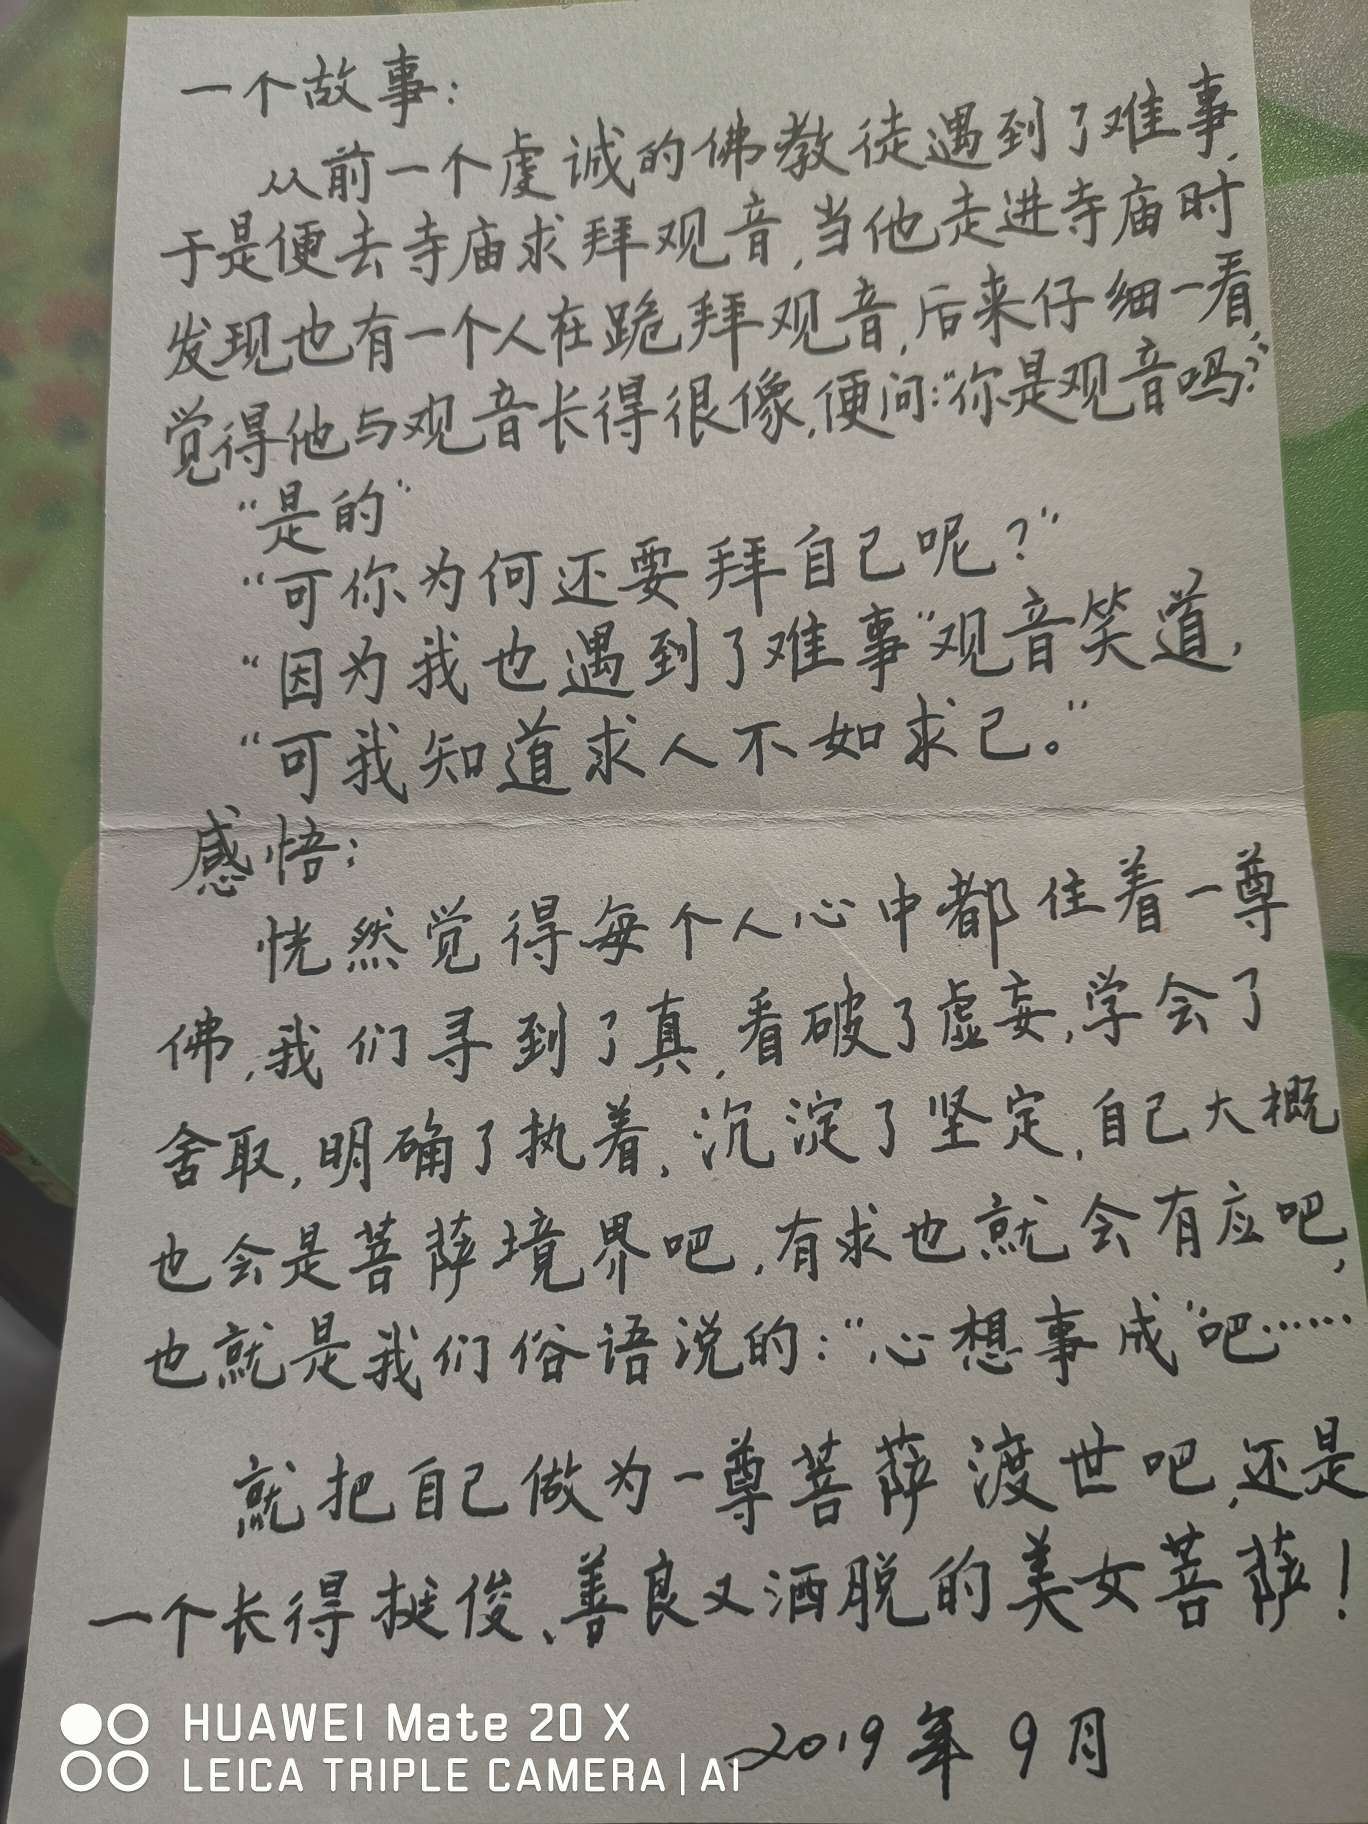 一个故事：
从前一个虔诚的佛教徒遇到了难事，
于是便去寺庙求拜观音，当他走进寺庙时
发现也有一个人在跪拜观音，后来仔细一看，
觉得他与观音长得很像，便问：“你是观音吗？”
“是的”
“可你为何还要拜自己呢？”
“因为我也遇到了难事”观音笑道，
“可我知道求人不如求己。”
感悟：
恍然觉得每个人心中都住着一尊
佛，我们寻到了真，看破了虚妄，学会了
舍取，明确了执着，沉淀了坚定，自己大概
也会是菩萨境界吧，有求也就会有应吧，
也就是我们俗语说的：“心想事成”吧……
就把自己做为一尊菩萨渡世吧，还是
一个长得挺俊、善良又洒脱的美女菩萨！
2019年9月
HUAWEI Mate 20 X
LEICA TRIPLE CAMERA | AI